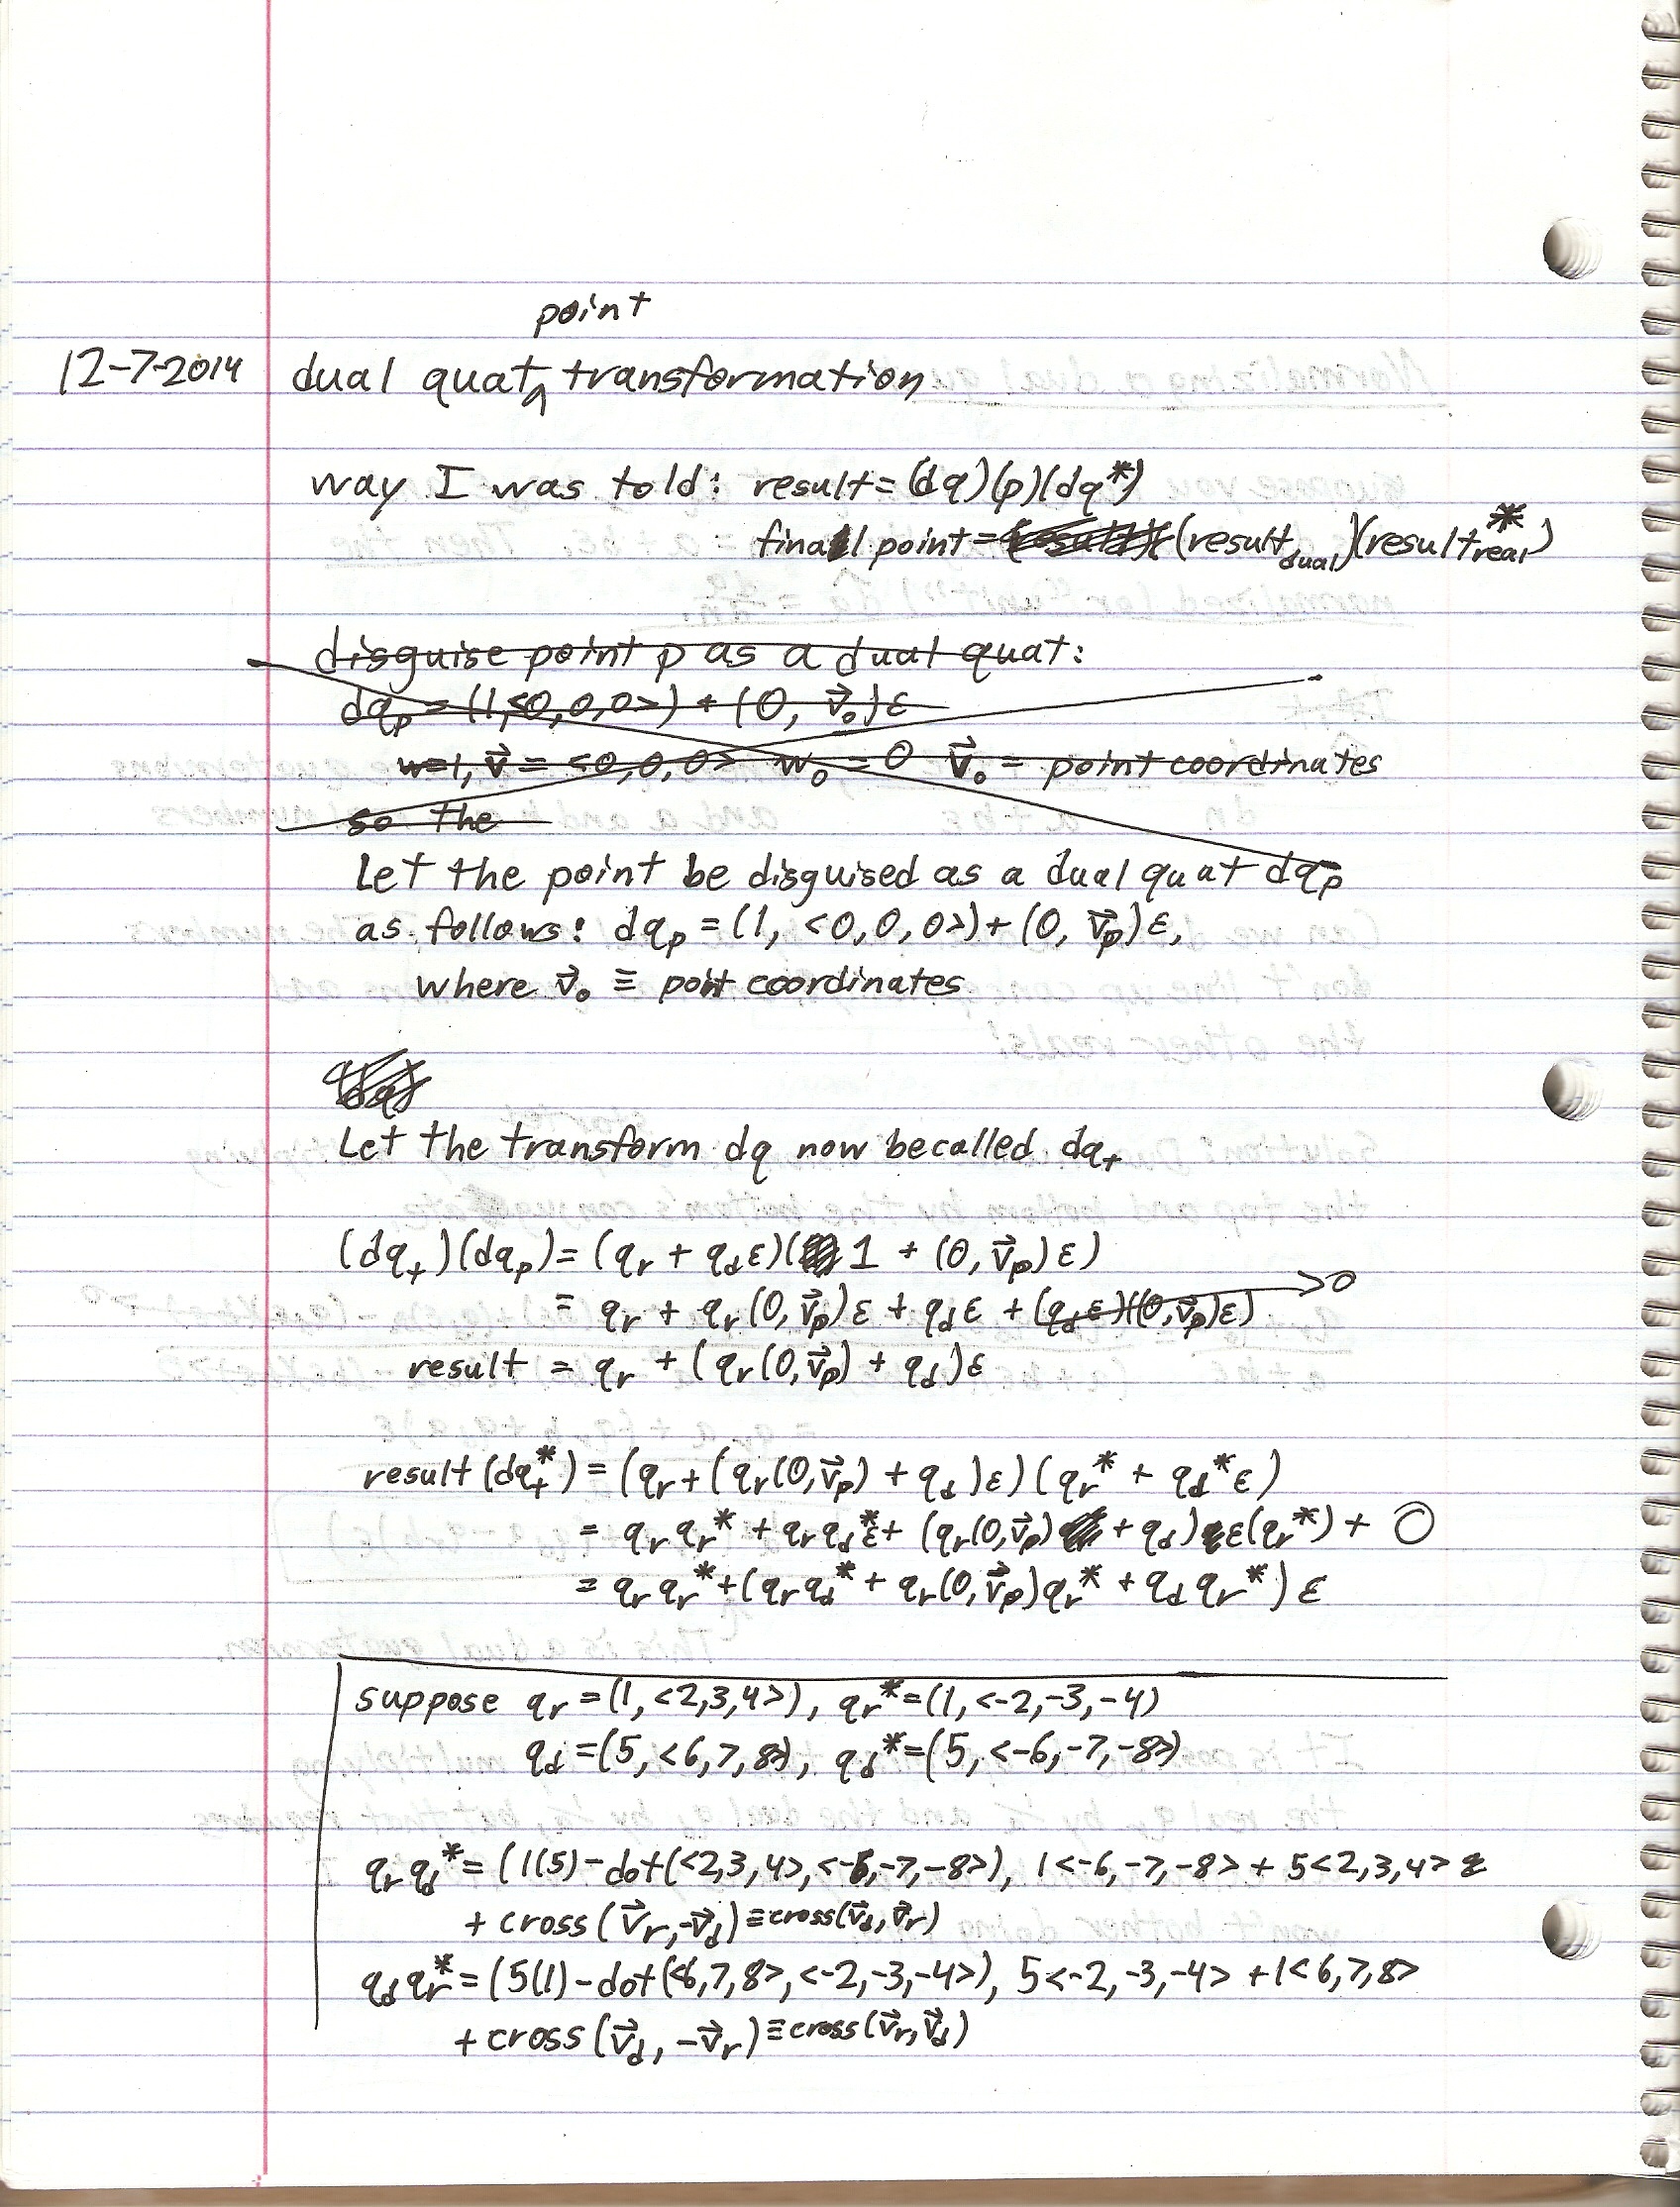 point
12-7-2014 dual quat ^ transformation
way I was told: result = (dq)(p)(dq*)
final point = (result_dual)(result_real*)
disguise point p as a dual quat:
dq_p = (1, <0,0,0>) + (0, v⃗₀)ε
w=1, v⃗ = <0,0,0> w₀ = 0 v⃗₀ = point coordinates
so the
Let the point be disguised as a dual quat dq_p
as follows: dq_p = (1, <0,0,0>) + (0, v⃗_p)ε,
where v⃗₀ ≡ point coordinates
Let the transform dq now be called dq_t
(dq_t)(dq_p) = (q_r + q_d ε)(1 + (0, v⃗_p)ε)
= q_r + q_r(0, v⃗_p)ε + q_d ε + (q_d ε)((0, v⃗_p)ε) → 0
result = q_r + (q_r(0, v⃗_p) + q_d)ε
result(dq_t*) = (q_r + (q_r(0, v⃗_p) + q_d)ε)(q_r* + q_d*ε)
= q_r q_r* + q_r q_d*ε + (q_r(0, v⃗_p) + q_d)ε(q_r*) + 0
= q_r q_r* + (q_r q_d* + q_r(0, v⃗_p)q_r* + q_d q_r*)ε
suppose q_r = (1, <2,3,4>), q_r* = (1, <-2,-3,-4)
q_d = (5, <6,7,8>), q_d* = (5, <-6,-7,-8>)
q_r q_d* = (1(5) - dot(<2,3,4>, <-6,-7,-8>), 1<-6,-7,-8> + 5<2,3,4>
+ cross(v⃗_r, -v⃗_d) ≡ cross(v⃗_d, v⃗_r)
q_d q_r* = (5(1) - dot(<6,7,8>, <-2,-3,-4>), 5<-2,-3,-4> + 1<6,7,8>
+ cross(v⃗_d, -v⃗_r) ≡ cross(v⃗_r, v⃗_d)